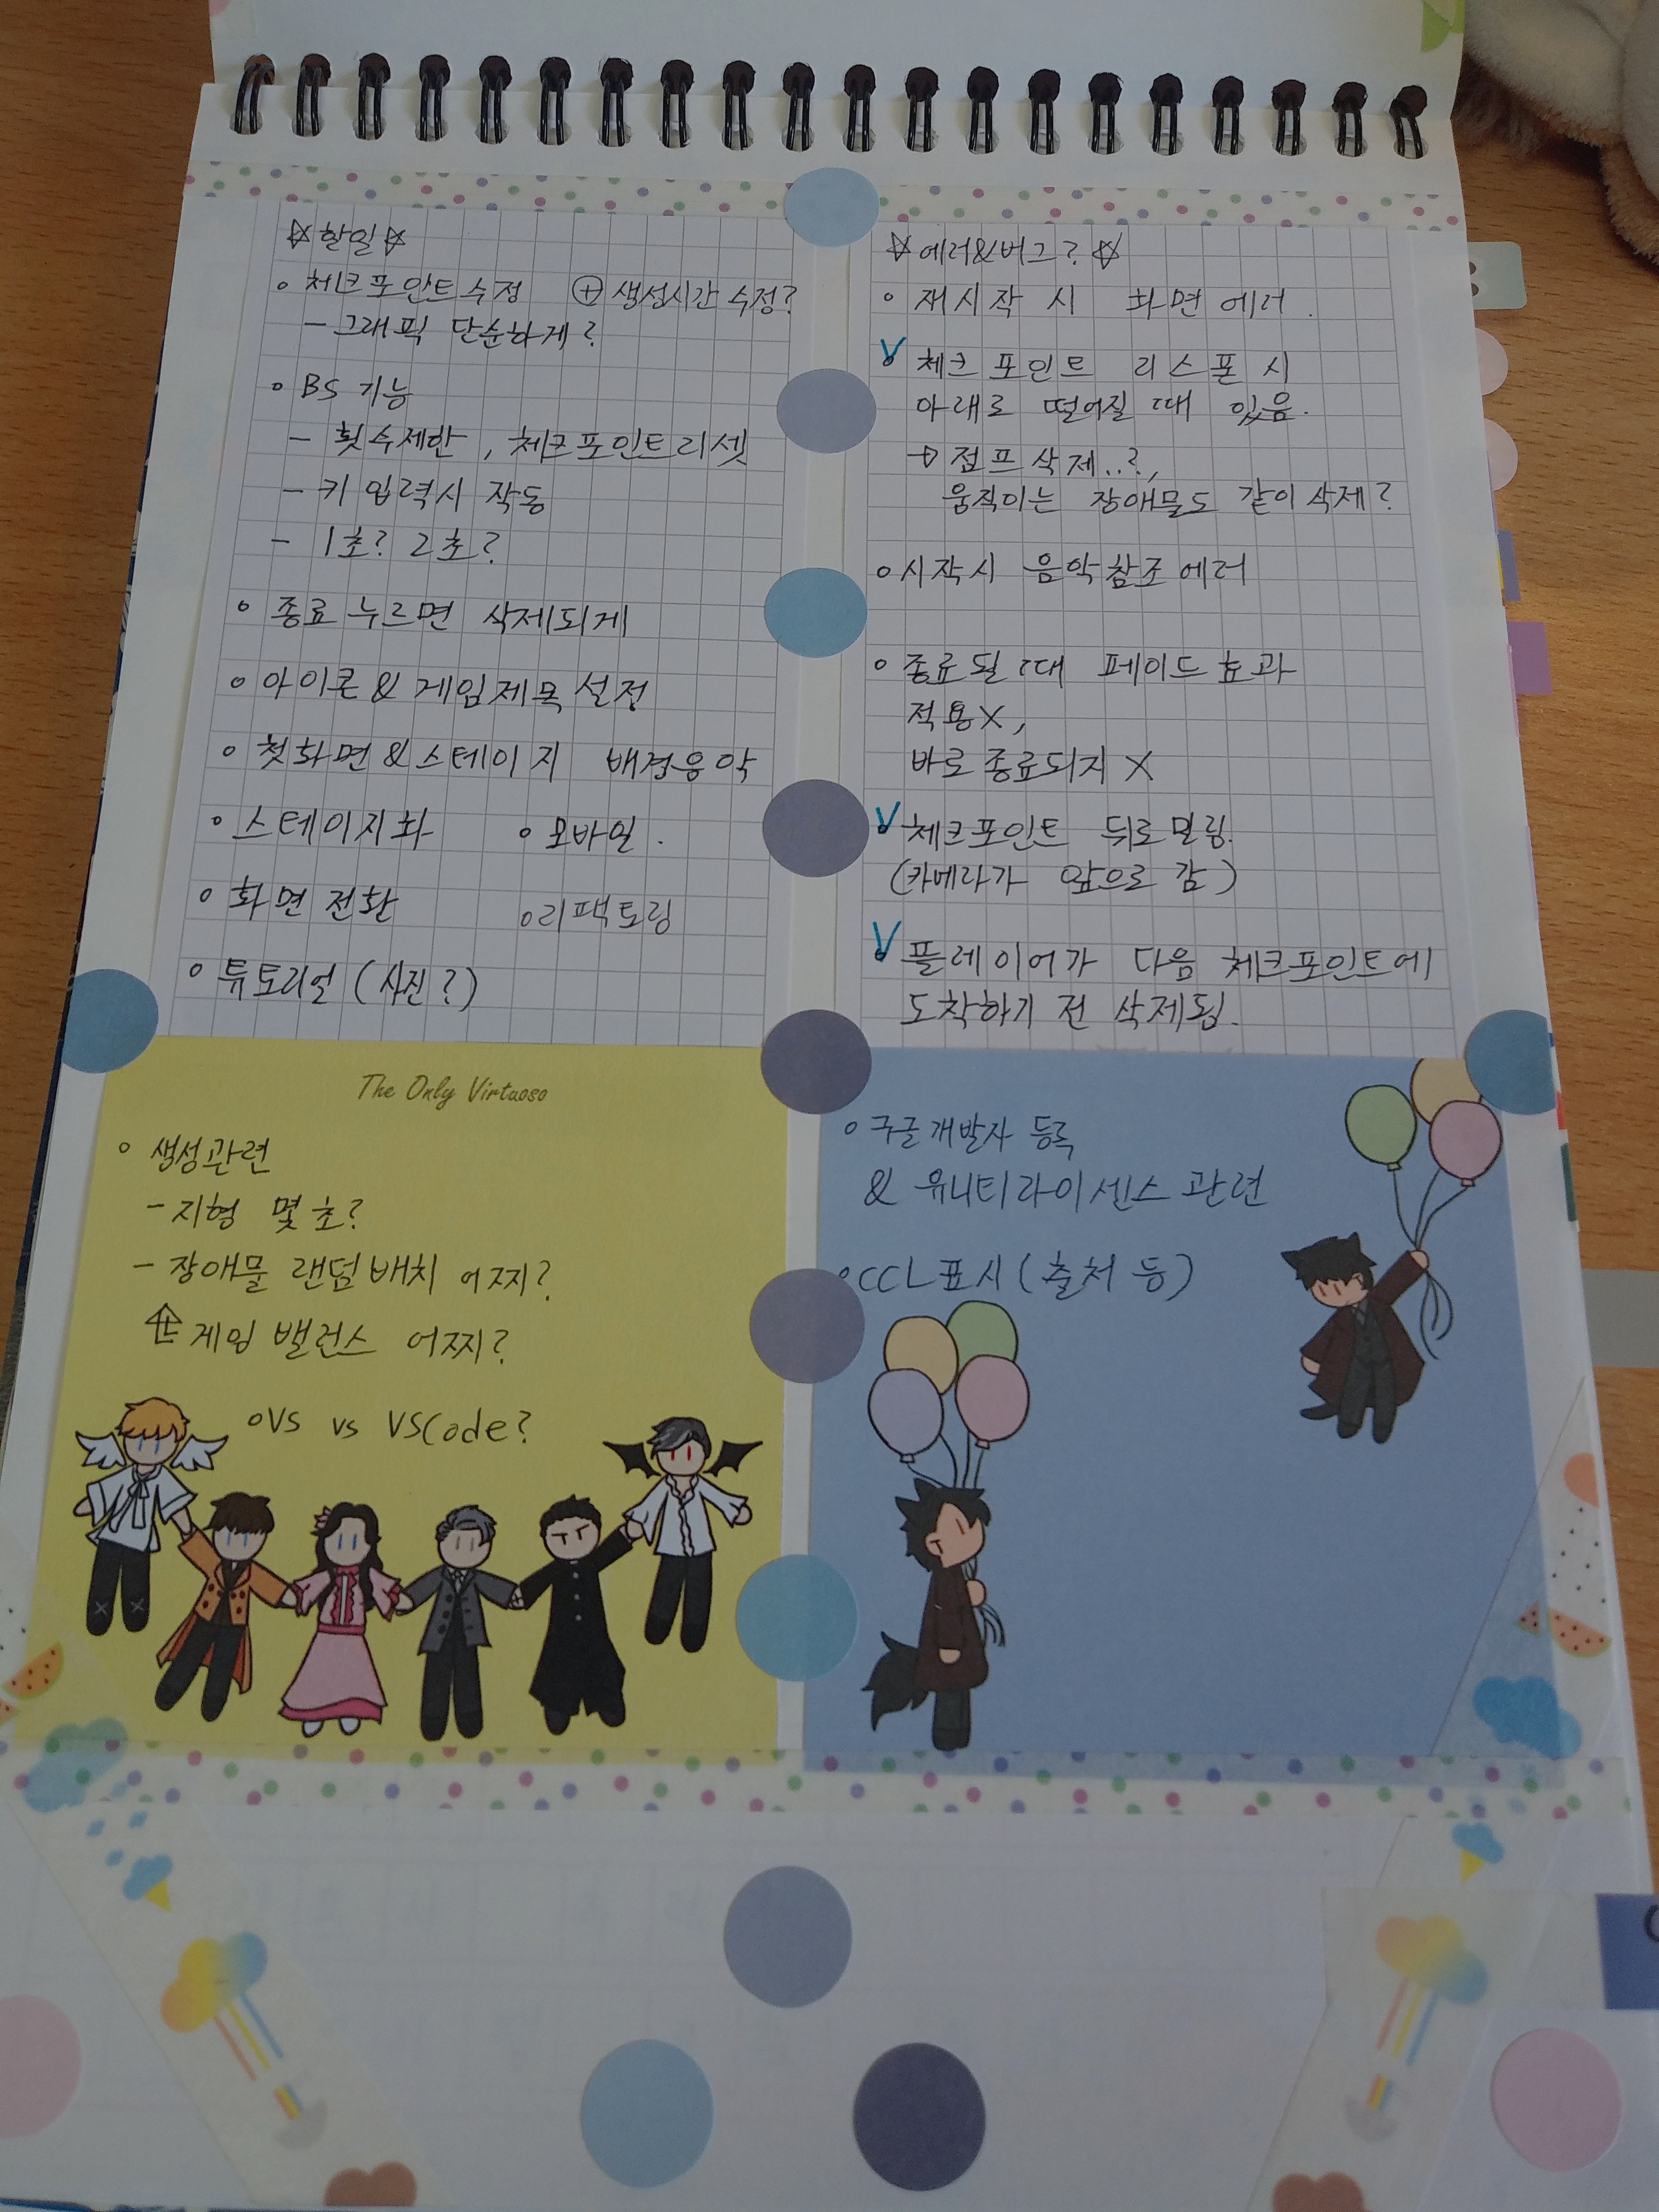 ☆할일☆
◦ 체크포인트 수정 ⊕ 생성시간 수정?
- 그래픽 단순하게?
◦ BS 기능
- 횟수제한, 체크포인트리셋
- 키 입력시 작동
- 1초? 2초?
◦ 종료 누르면 삭제되게
◦ 아이콘 & 게임제목 설정
◦ 첫화면 & 스테이지 배경음악
◦ 스테이지화 ◦ 모바일.
◦ 화면 전환 ◦ 리팩토링
◦ 튜토리얼 (사진?)
☆에러&버그?☆
◦ 재시작 시 화면 에러.
V 체크포인트 리스폰 시
아래로 떨어질 때 있음.
→ 점프삭제..?,
움직이는 장애물도 같이 삭제?
◦ 시작시 음악참조 에러
◦ 종료될 때 페이드 효과
적용X,
바로 종료되지 X
V 체크포인트 뒤로 밀림.
(카메라가 앞으로 감)
V 플레이어가 다음 체크포인트에
도착하기 전 삭제됨.
The Only Virtuoso
◦ 생성관련
- 지형 몇 초?
- 장애물 랜덤배치 어찌?
게임 밸런스 어찌?
◦ VS vs VSCode?
◦ 구글개발자 등록
& 유니티라이센스 관련
◦ CCL표시 (출처 등)